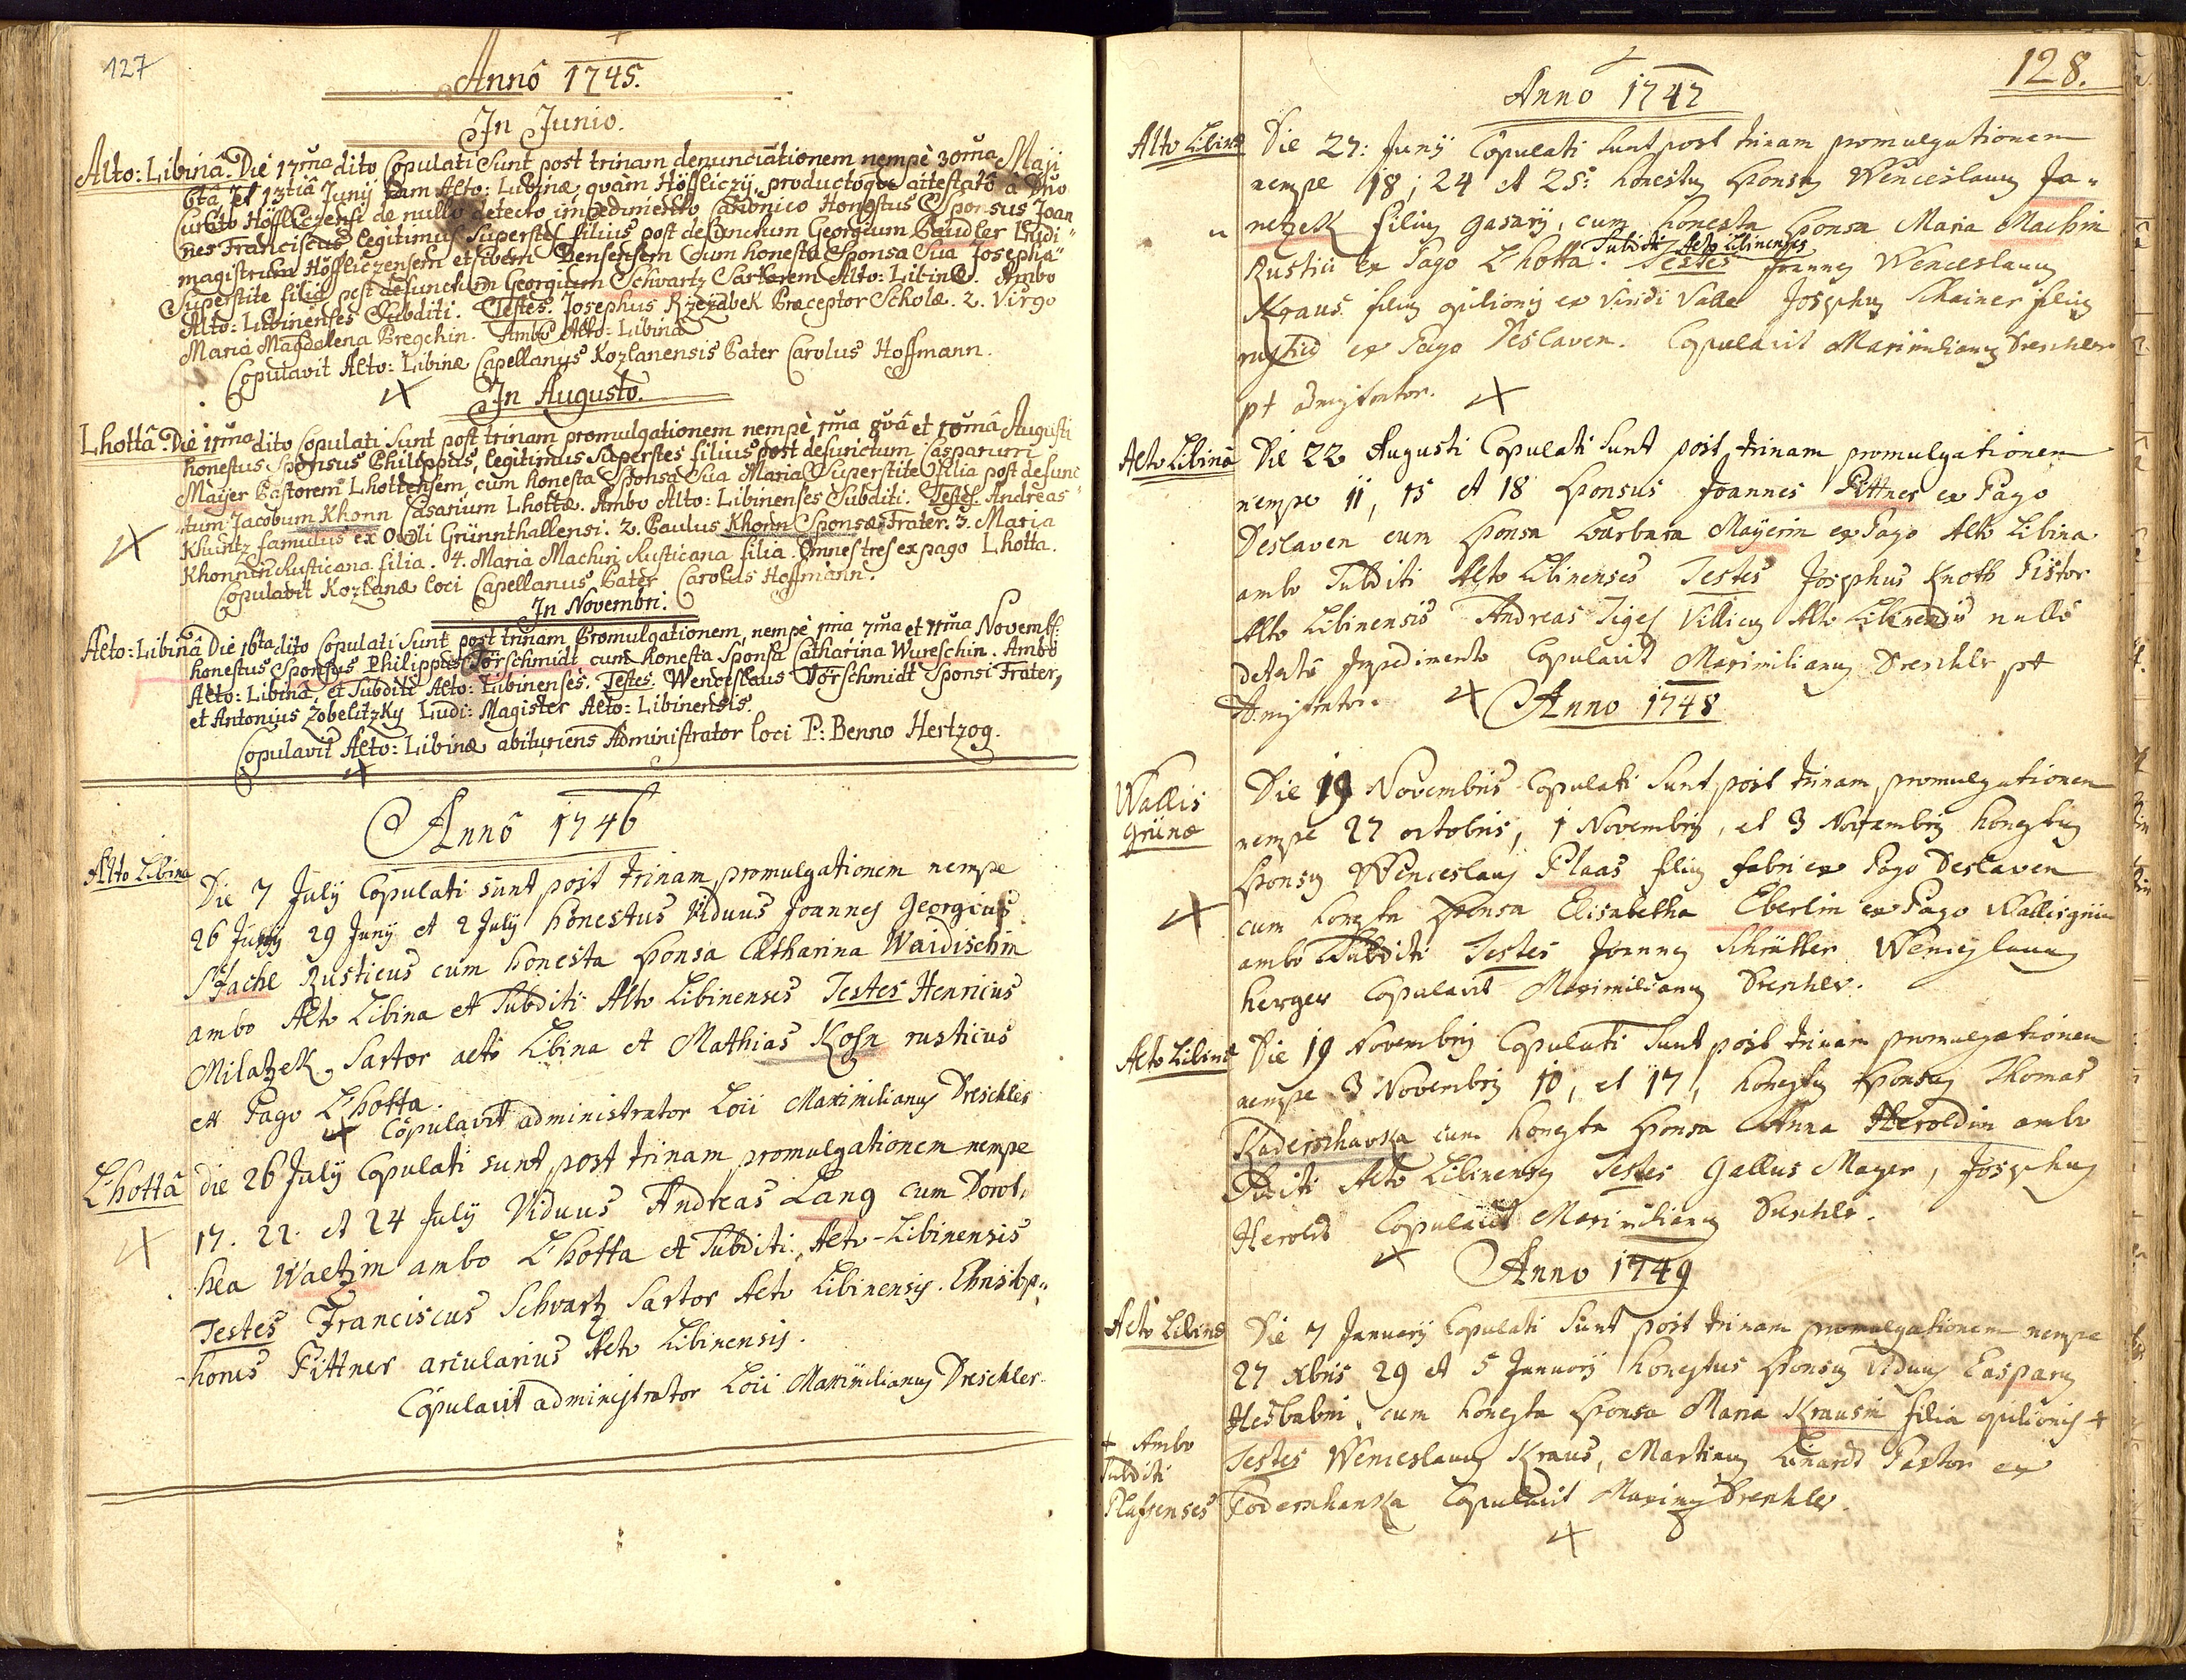 127
Annô 1745.
In Junio.
Alto: Libinâ. Die 17ma dito Copulati Sunt post trinam denunciationem nempè 30ma Maij
6tâ et 13tiâ Junij tam Alto: Libinæ, quàm Höffliczij, productoque attestatô â Dno
Curato Höffliczensi de nullo detecto impedimento Canonico Honestus Sponsus Joan
nes Franciscus legitimus Superstes filius post defunctum Georgium Baudler Ludi"
magistrum Höffliczensem et Civem ibensensem Cum honesta Sponsa Sua Josepha"
Superstite filia post defunctum Georgium Schwartz Sartorem Alto: Libinæ. Ambo
Alto: Libinenses Subditi. Testes. Josephus Rzezabek Præceptor Scholæ. 2. Virgo
Maria Magdalena Pregchin. Ambo Alto: Libina
Copulavit Alto: Libinæ Capellanus Kozlanensis Pater Carolus Hoffmann.
In Augusto.
Lhottâ. Die 11ma dito Copulati Sunt post trinam promulgationem nempè 1ma 8vâ et 10mâ Augusti
honestus Sponsus Philippus, legitimus Superstes filius post defunctum Casparum
Mayer Pastorem Lhottensem cum honesta Sponsa Sua Maria Superstite Filia post defunc
tum Jacobum Khonn Casarium Lhottæ. Ambo Alto: Libinenses Subditi. Testes. Andreas
Khuntz famulus ex Ovili Grünnthallensi. 2. Paulus Khonn Sponsæ Frater. 3. Maria
Khonnin Rusticana filia. 4. Maria Machin Rusticana filia. Omnes tres ex pago Lhotta.
Copulavit Kozlanæ loci Capellanus Pater Carolus Hoffmann.
In Novembri.
Alto: Libinâ Die 16ta dito Copulati Sunt post trinam Promulgationem, nempè 1ma 7ma et 11ma Novemb:
honestus Sponsus Philippus Törschmidt cum honesta Sponsa Catharina Wureschin. Ambo
Alto: Libina, et Subditi Alto: Libinenses. Testes. Wenceslaus Törschmidt Sponsi Frater,
et Antonius Zobelitzky Ludi: Magister Alto: Libinensis.
Copulavit Alto: Libinæ abituriens Administrator loci P: Benno Hertzog.
Annô 1746
Alto Libina
Die 7 July Copulati sunt post trinam promulgationem nempe
26 Junij 29 Junij et 2 July honestus Viduus Joannes Georgius
Stachl Rusticus cum honesta sponsa Catharina Waidischin
ambo Alto Libina et Subditi Alto Libinenses Testes Henricus
Milatzek Sartor alto Libina et Mathias Kohn rusticus
ex Pago Lhotta.
Copulavit administrator Loci Maximilianus Dreschler
Lhottâ
die 26 July Copulati sunt post trinam promulgationem nempe
17. 22. et 24 July Viduus Andreas Lang cum Dorot,
hea Waltzin ambo Lhotta et Subditi Alto-Libinensis
Testes Franciscus Schvartz Sartor Alto Libinensis.
Pittner arcularius Alto Libinensis.
Copulavit administrator Loci Maximilianus Dreschler.
128.
Anno 1747
Alto Libinæ
Die 27: Junij Copulati Sunt post trinam promulgationem
nempe 18, 24 et 25: honestus Sponsus Wenceslaus Ja"
netzek filius Casarij, cum honesta Sponsa Maria Machin
Subditi Alto Libinenses
Rustici ex Pago Lhotta. Testes Joannes Wenceslaus
Kraus filius opilionis ex Viridi Valle Josephus Schainer filius
rustici ex Pago Deslaven. Copulavit Maximilianus Dreschler
pt admistrator.
Alto Libinâ
Die 22 Augusti Copulati Sunt post trinam promulgationem
nempe 11, 15 et 18 Sponsus Joannes Pittner ex Pago
Deslaven cum Sponsa Barbara Mayerin ex Pago Alto Libina
ambo Subditi Alto Libinenses Testes Josephus Knoth Pistor
Alto Libinensis Andreas Tiges Villicus Alto Libinensis nullo
detecto Impedimento Copulavit Maximilianus Dreschler pt
Admistrator.
Anno 1748
Wallis
grünæ
Die 19 Novembris Copulati Sunt post trinam promulgationem
nempe 27 octobris, 1 Novembris, et 3 Novembris honestus
Sponsus Wenceslaus Plaas filius fabri ex Pago Deslaven
cum honesta Sponsa Elisabetha Eberlin ex Pago Wallisgrün
ambo Subditi Testes Joannes Schrötter Wenceslaus
herger Copulavit Maximilianus Dreschler.
Alto Libinæ
Die 19 Novembris Copulati Sunt post trinam promulgationem
nempe 3 Novembris 10, et 17, honestus Sponsus Thomas
Kaderschavka cum honesta Sponsa Anna Heroldin ambo
Subditi Alto Libinenses Testes Gallus Mayer, Josephus
Herold Copulavit Maximilianus Dreschler.
Anno 1749
Alto Libinæ
Die 7 Januarij Copulati Sunt post trinam promulgationem nempe
27 Xbris 29 et 5 Januarij honestus Sponsus Viduus Casparus
Hesbabin cum honesta Sponsa Maria Krausin filia opilionis +
+ Ambo
Subditi
Plassenses
Testes Wenceslaus Kraus, Martinus Linardt Pastor ex
Koderschanka Copulavit Maxim Dreschler.